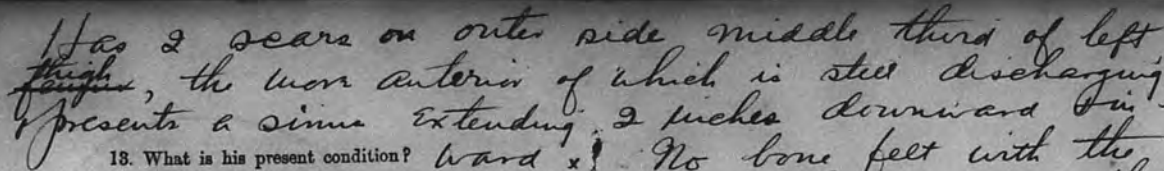 Has 2 scars on outer side middle third of left
thigh, the more anterior of which is still discharging
& presents a sinus extending 2 inches downward & in-
13. What is his present condition? ward x! No bone felt with the